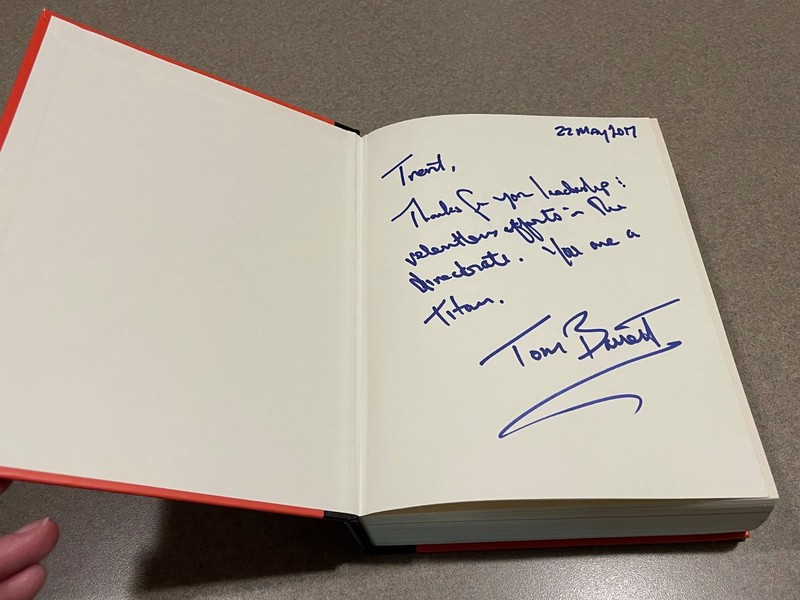 22 MAY 2017
Trent,
Thanks for your leadership &
relentless efforts in the
directorate. You are a
titan.
Tom Barrett